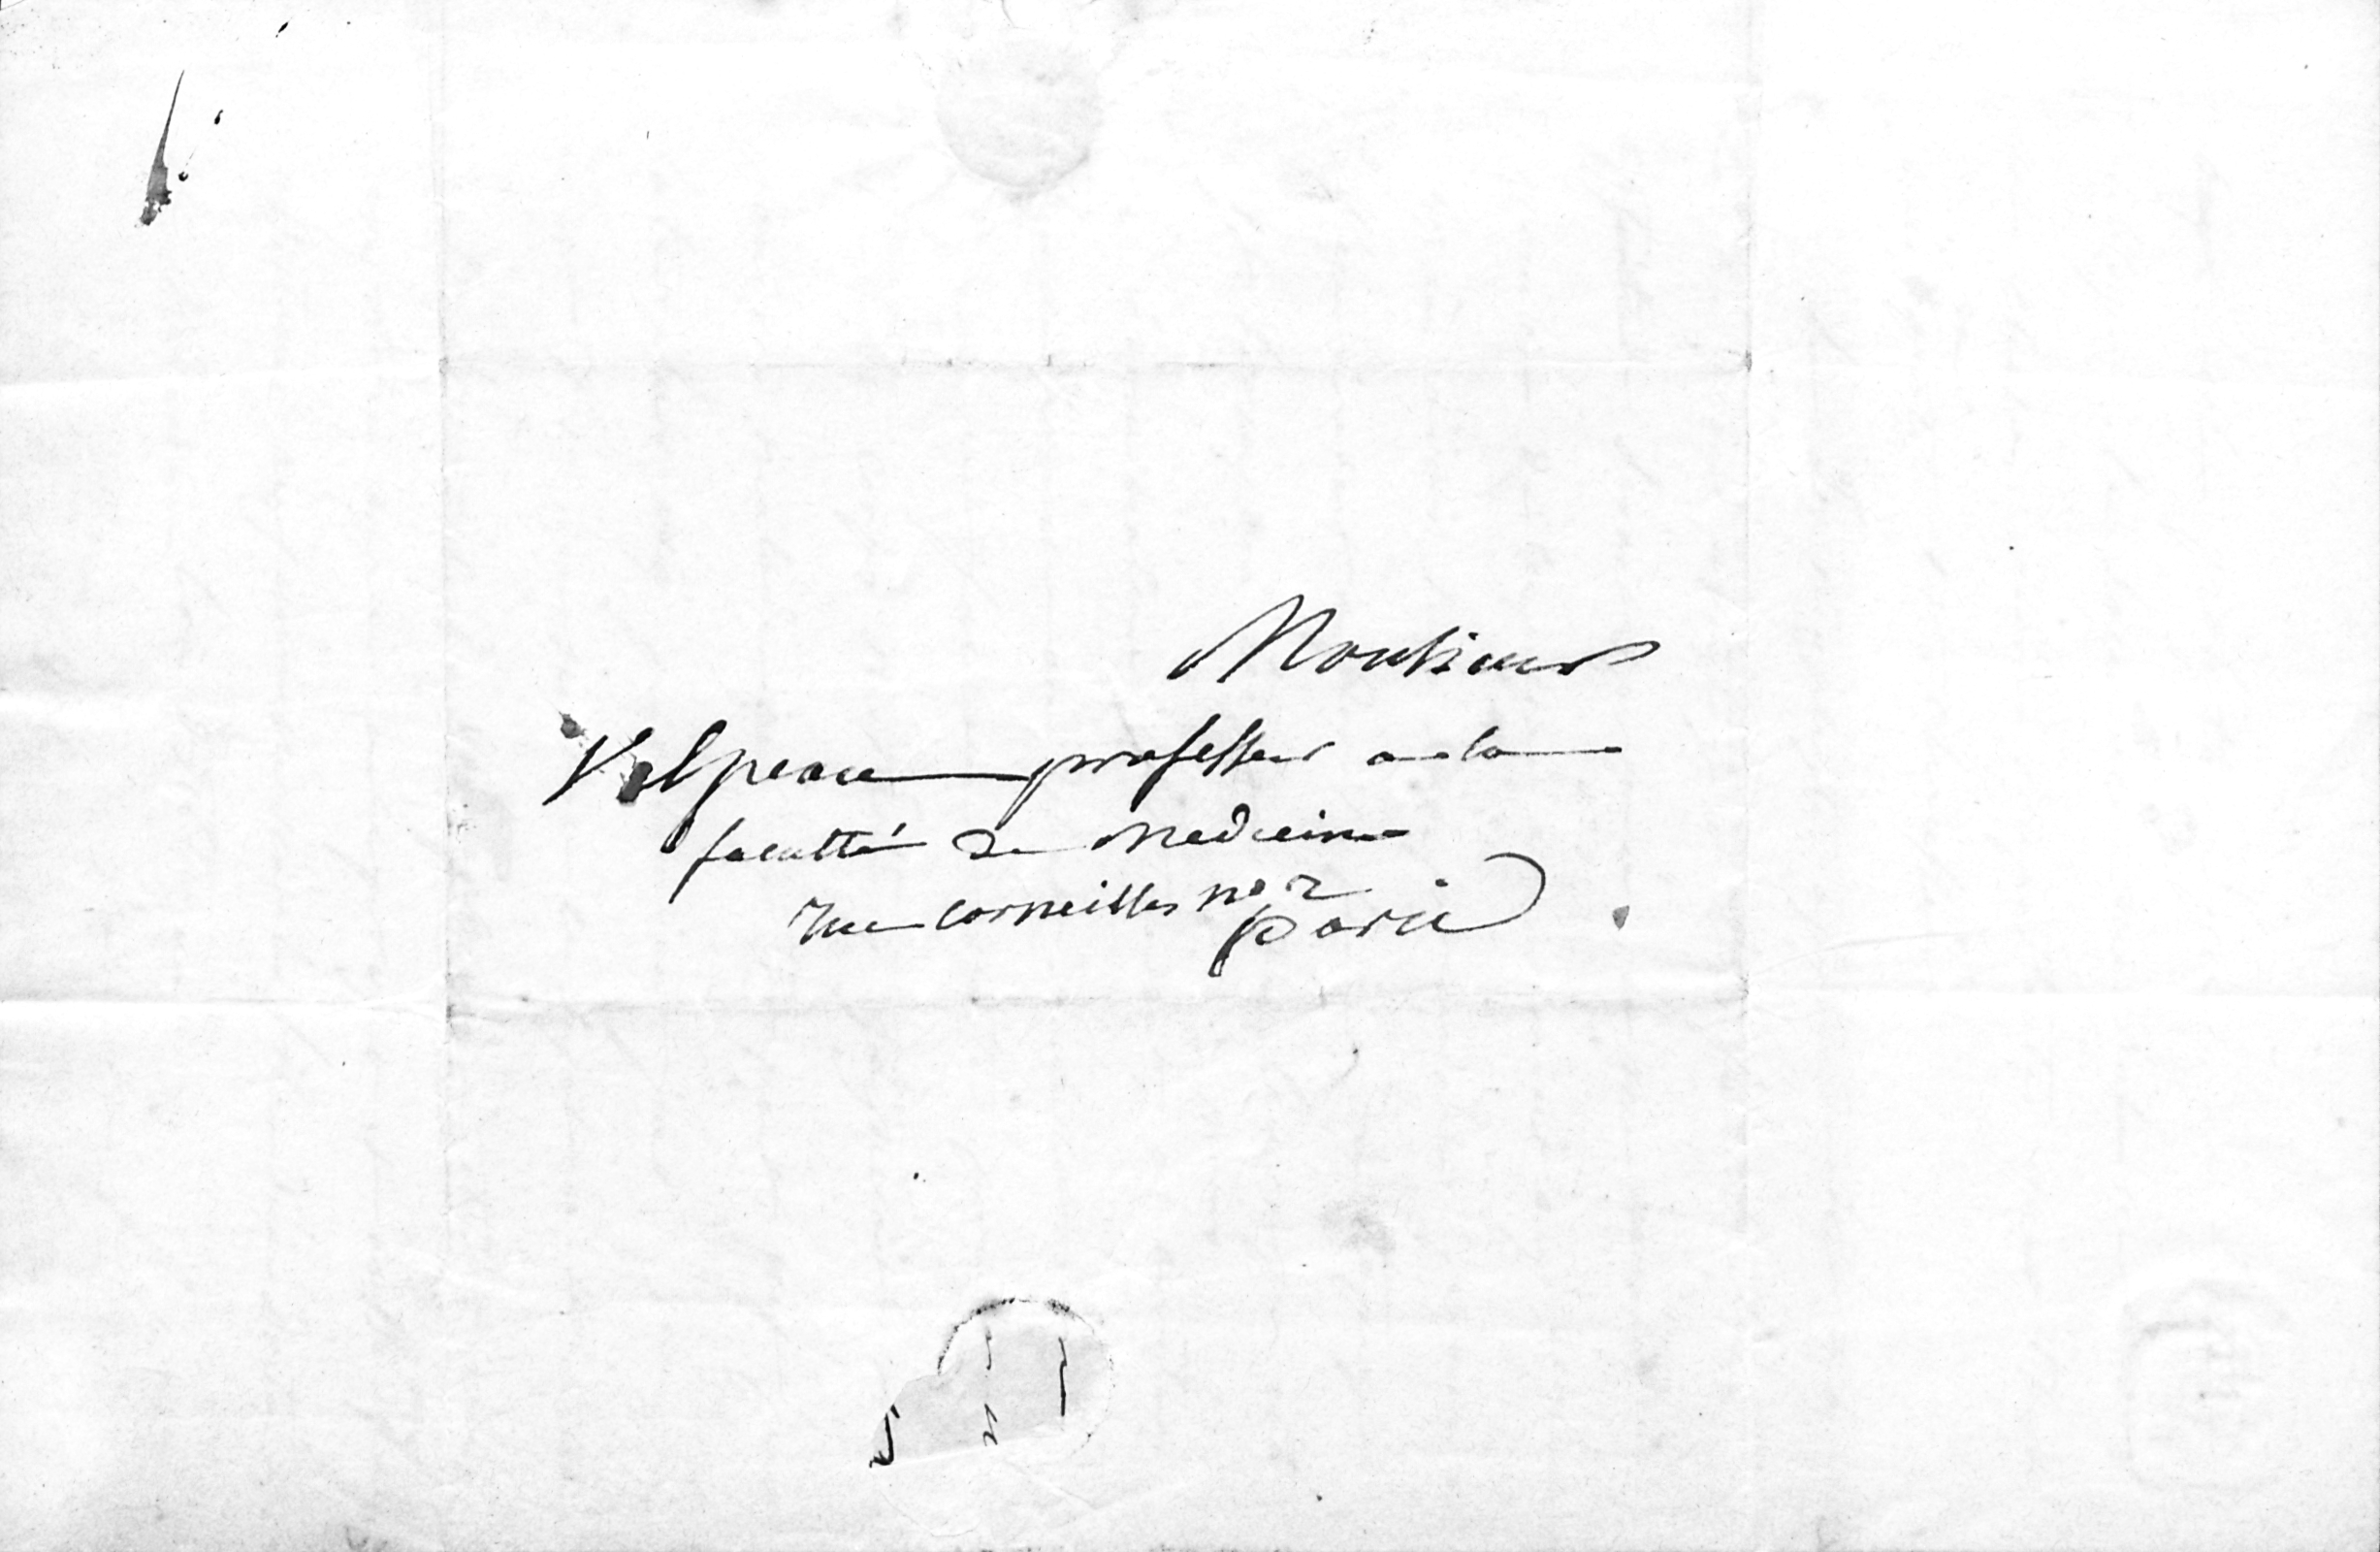 Monsieur
Velpeau professeur a la
faculté de Medecine
rue Corneilles no 2
paris